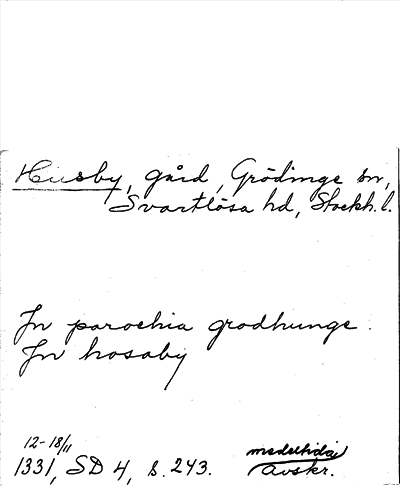 Husby, gård, Grödinge sn,
Svartlösa hd, Stockh. l.
In parochia grodhunge.
In hosaby
12-18/11
1331, SD 4, s. 243.
medeltida
avskr.